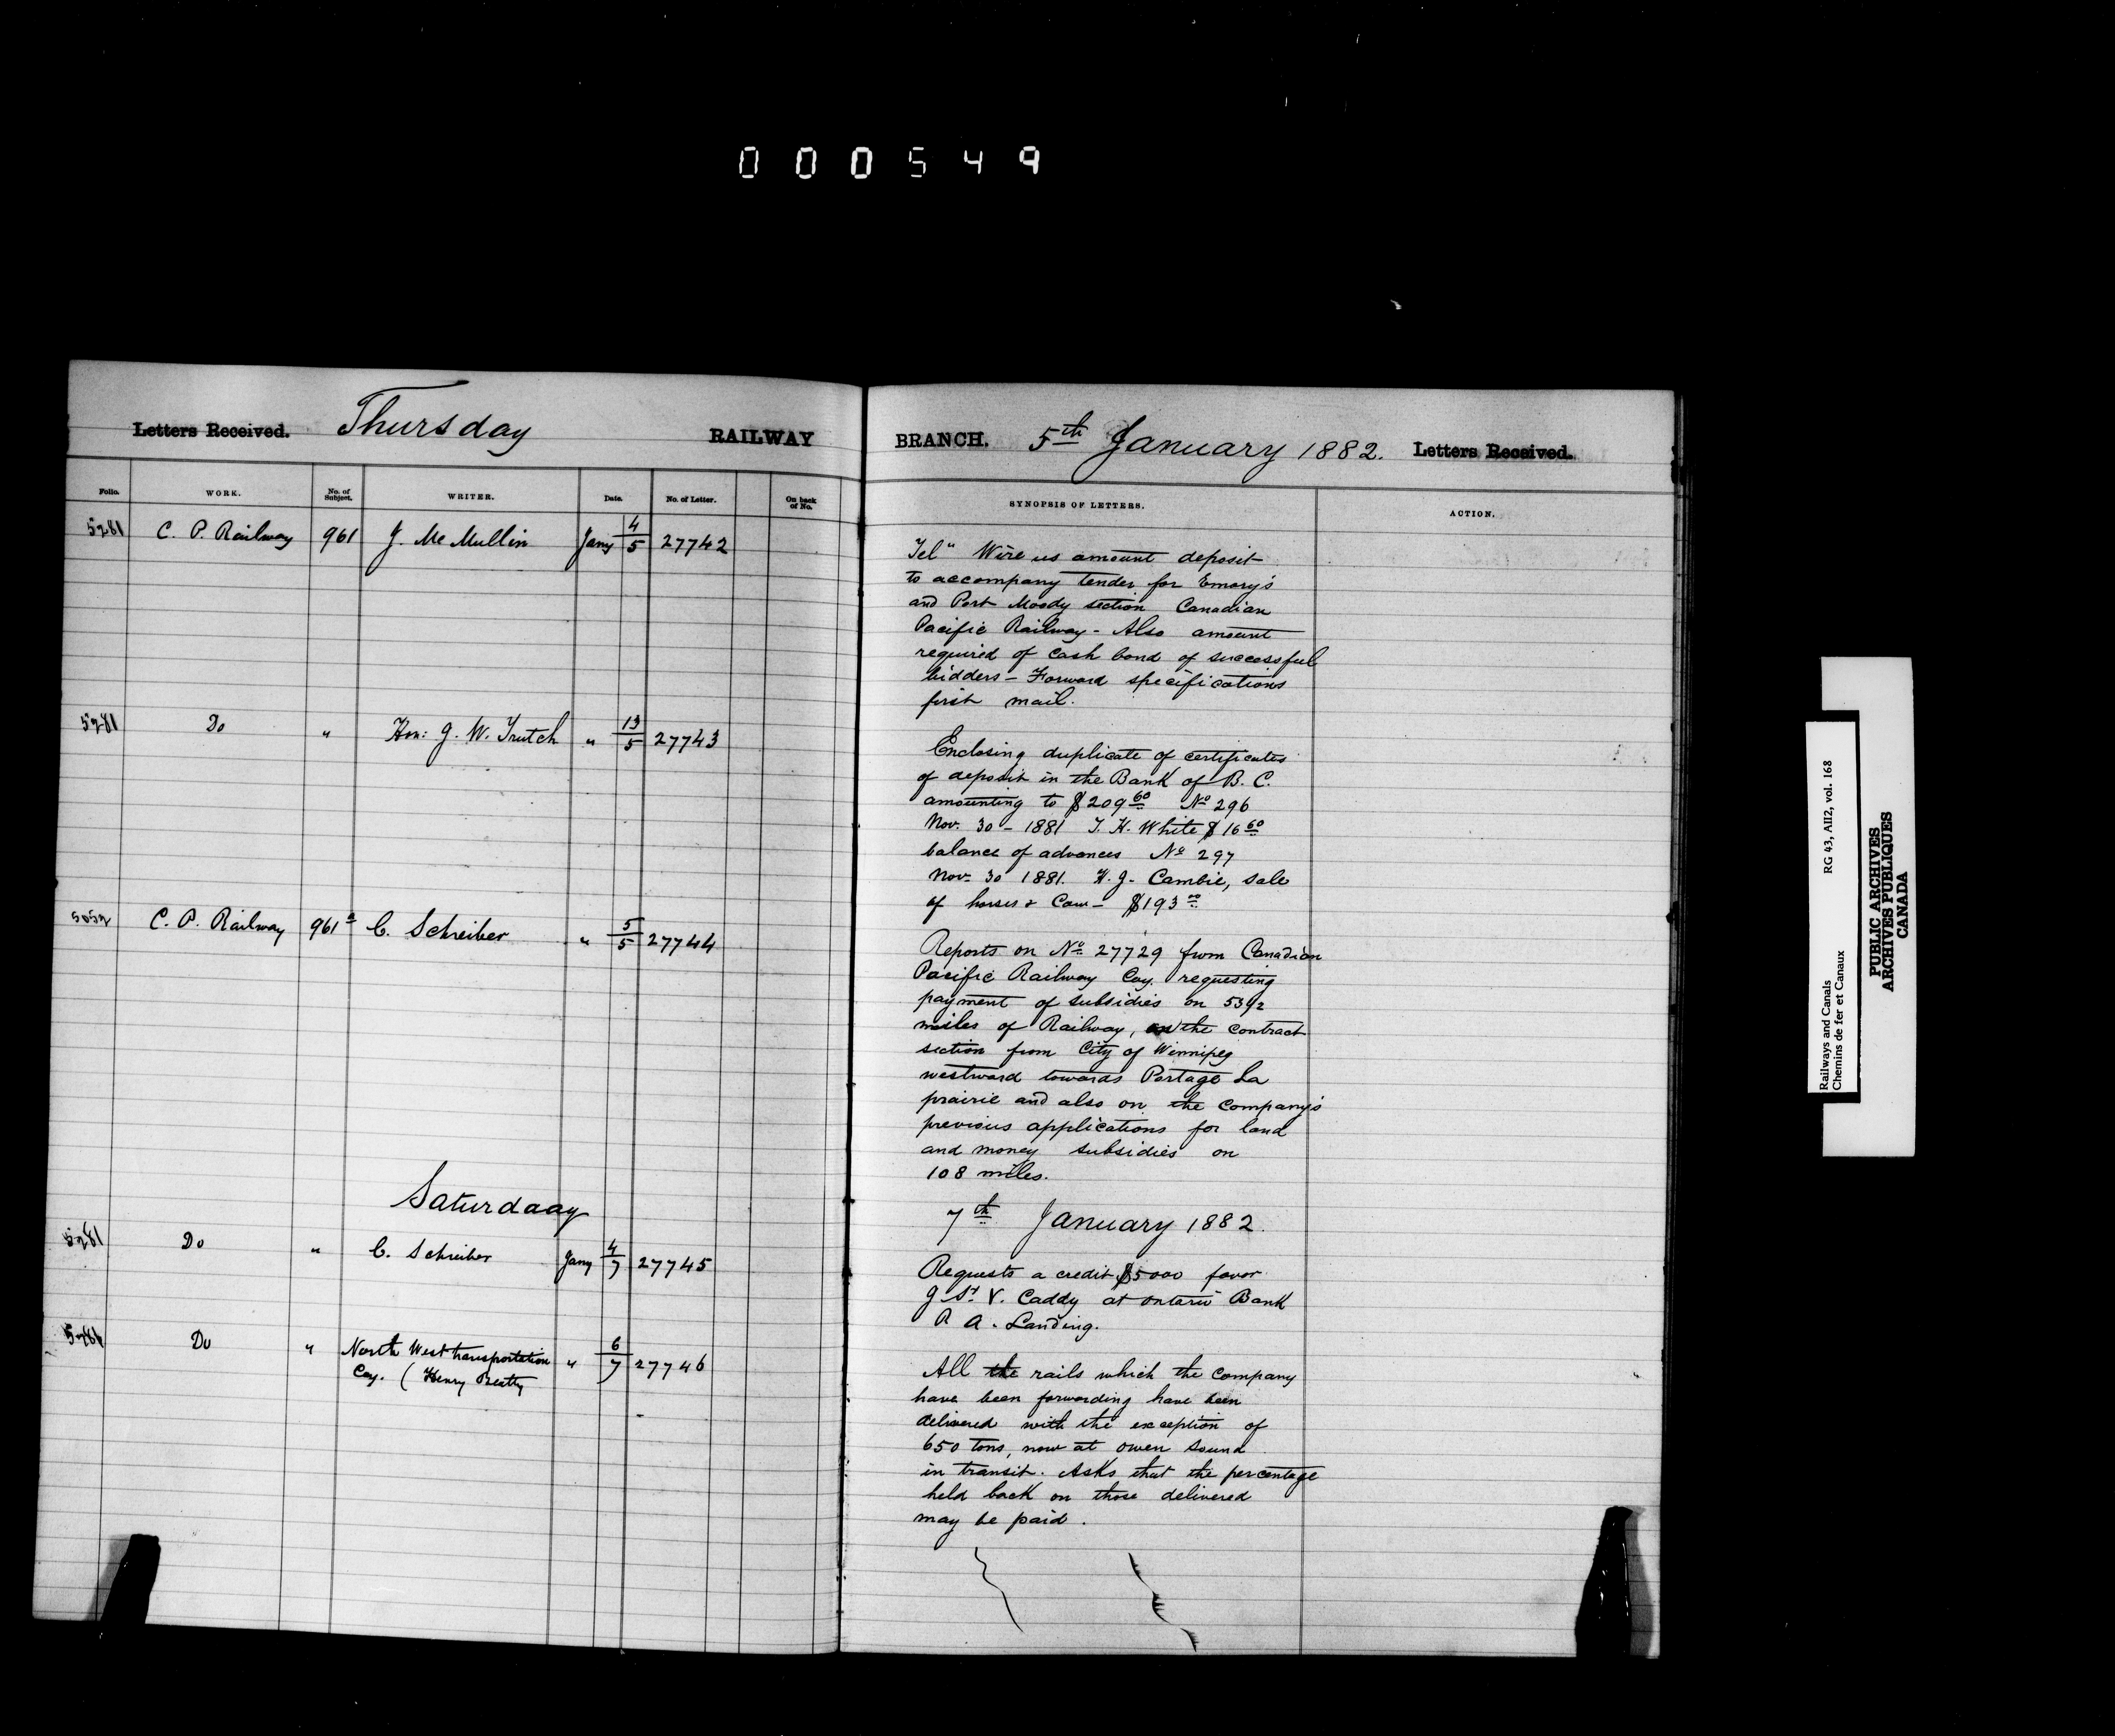 000549
Letters Received. Thursday RAILWAY
Folio. WORK. No. of Subject. WRITER. Date. No. of Letter. On back of No.
5281 C. P. Railway 961 J. McMullin Jany 4/5 27742
5281 Do " Hon: J. W. Trutch " 13/5 27743
5052 C. P. Railway 961a C. Schreiber " 5/5 27744
Saturdaay
5281 Do " C. Schreiber Jany 4/7 27745
Do " North West transportation " 6/7 27746
Coy. ( Henry Beatty
BRANCH. 5th January 1882. Letters Received.
SYNOPSIS OF LETTERS. ACTION.
Tel" Wire us amount deposit
to accompany tender for Emory's
and Port Moody section Canadian
Pacific Railway - Also amount
required of cash bond of successful
bidders - Forward specifications
first mail.
Enclosing duplicate of certificates
of deposit in the Bank of B. C.
amounting to $209 60 No 296
Nov. 30 - 1881 T. H. White $16 60
balance of advances No 297
Nov. 30 1881. H. J. Cambie, sale
of horses & Cow - $193 00
Reports on No 27729 from Canadian
Pacific Railway Coy. requesting
payment of subsidies on 53 1/2
miles of Railway, on the contract
section from City of Winnipeg
westward towards Portage La
prairie and also on the company's
previous applications for land
and money subsidies on
108 miles.
7th January 1882.
Requests a credit $5000 favor
J St. V. Caddy at Ontario Bank
P. A. Landing.
All the rails which the company
have been forwarding have been
delivered with the exception of
650 tons, now at Owen Sound
in transit. Asks that the percentage
held back on those delivered
may be paid.
Railways and Canals RG 43, AII2, vol. 168
Chemins de fer et Canaux
PUBLIC ARCHIVES
ARCHIVES PUBLIQUES
CANADA